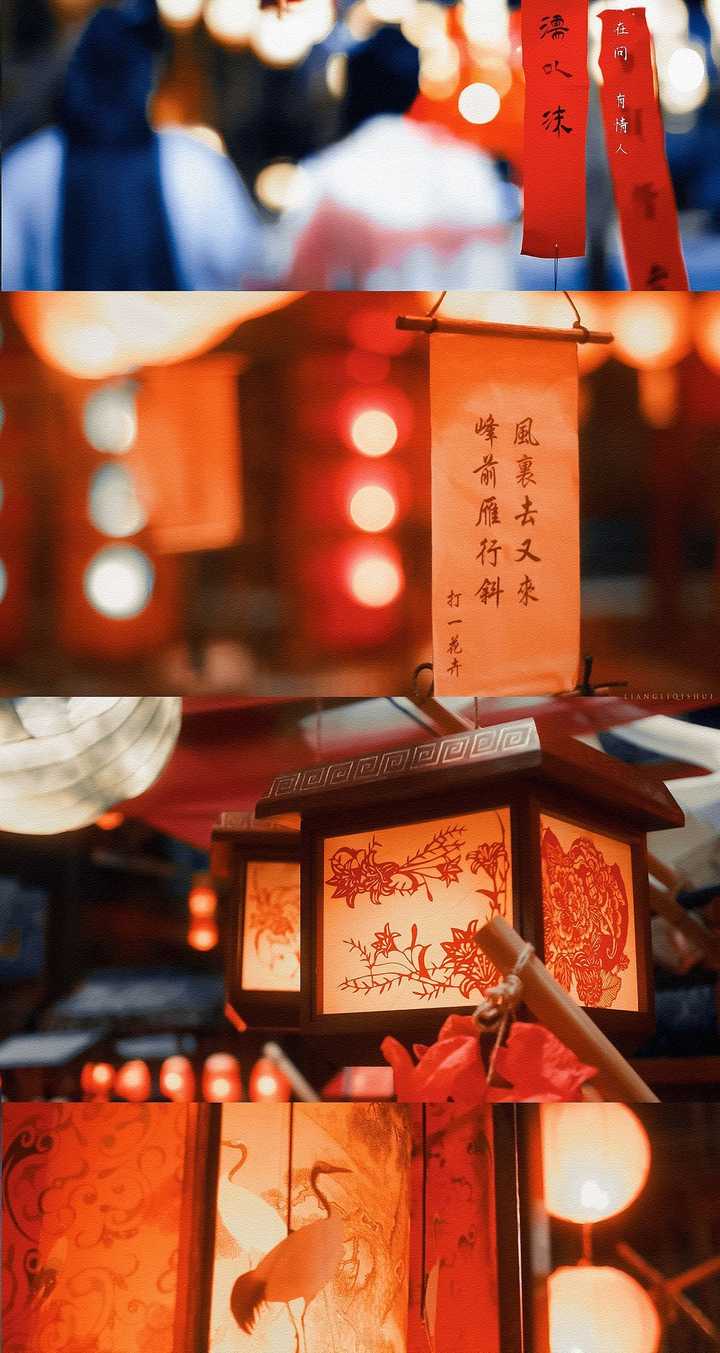 濡以沫
在问 有情人
風裏去又來
峰前雁行斜
打一花卉
LIANGLIQISHUI